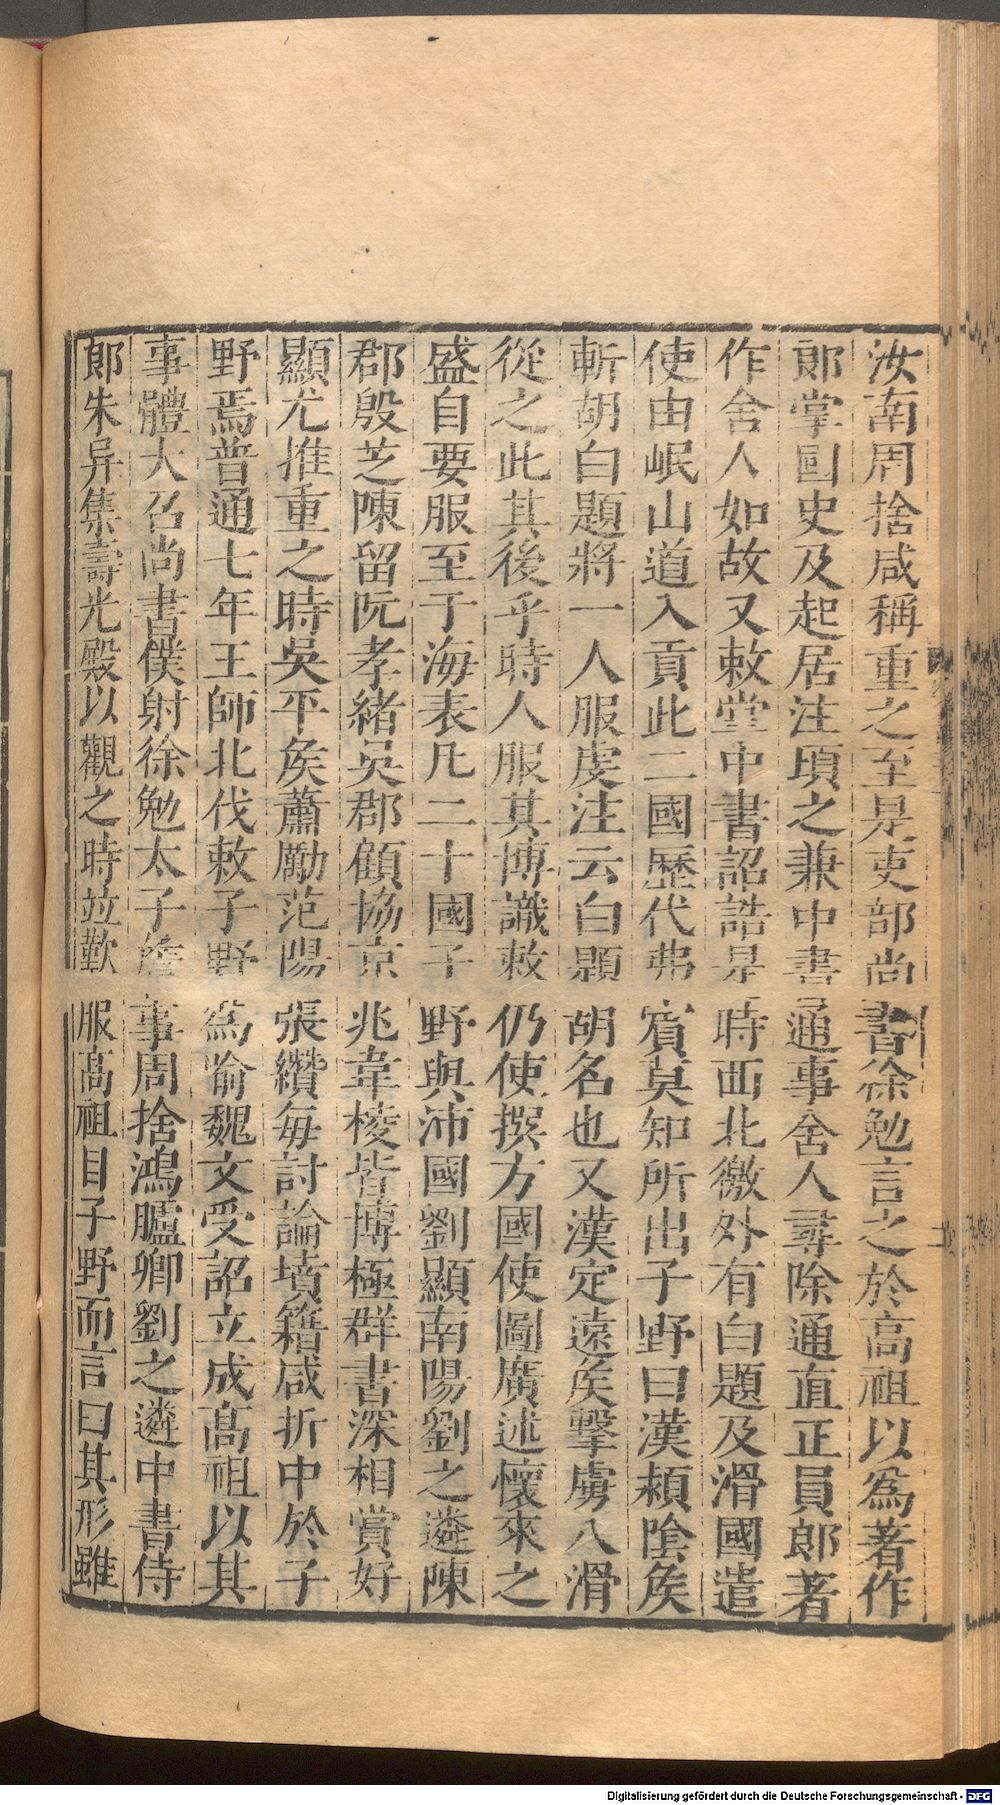 汝南周捨咸稱重之至是吏部尚書徐勉言之於高祖以爲著作
郎掌國史及起居注頃之兼中書通事舍人尋除通直正員郎著
作舍人如故又敕掌中書詔誥是時西北徼外有白題及滑國遣
使由岷山道入貢此二國歷代弗賓莫知所出子野曰漢潁陰矦
斬胡白題將一人服虔注云白題胡名也又漢定遠矦擊虜八滑
從之此其後乎時人服其博識敕仍使撰方國使圖廣述懷來之
盛自要服至于海表凡二十國子野與沛國劉顯南陽劉之遴陳
郡殷芝陳留阮孝緒吳郡顧協京兆韋棱皆博極群書深相賞好
顯尤推重之時吳平矦蕭勵范陽張纘每討論墳籍咸折中於子
野焉普通七年王師北伐敕子野爲喻魏文受詔立成高祖以其
事體大召尚書僕射徐勉太子詹事周捨鴻臚卿劉之遴中書侍
郎朱异集壽光殿以觀之時竝歎服高祖目子野而言曰其形雖
Digitalisierung gefördert durch die Deutsche Forschungsgemeinschaft - DFG